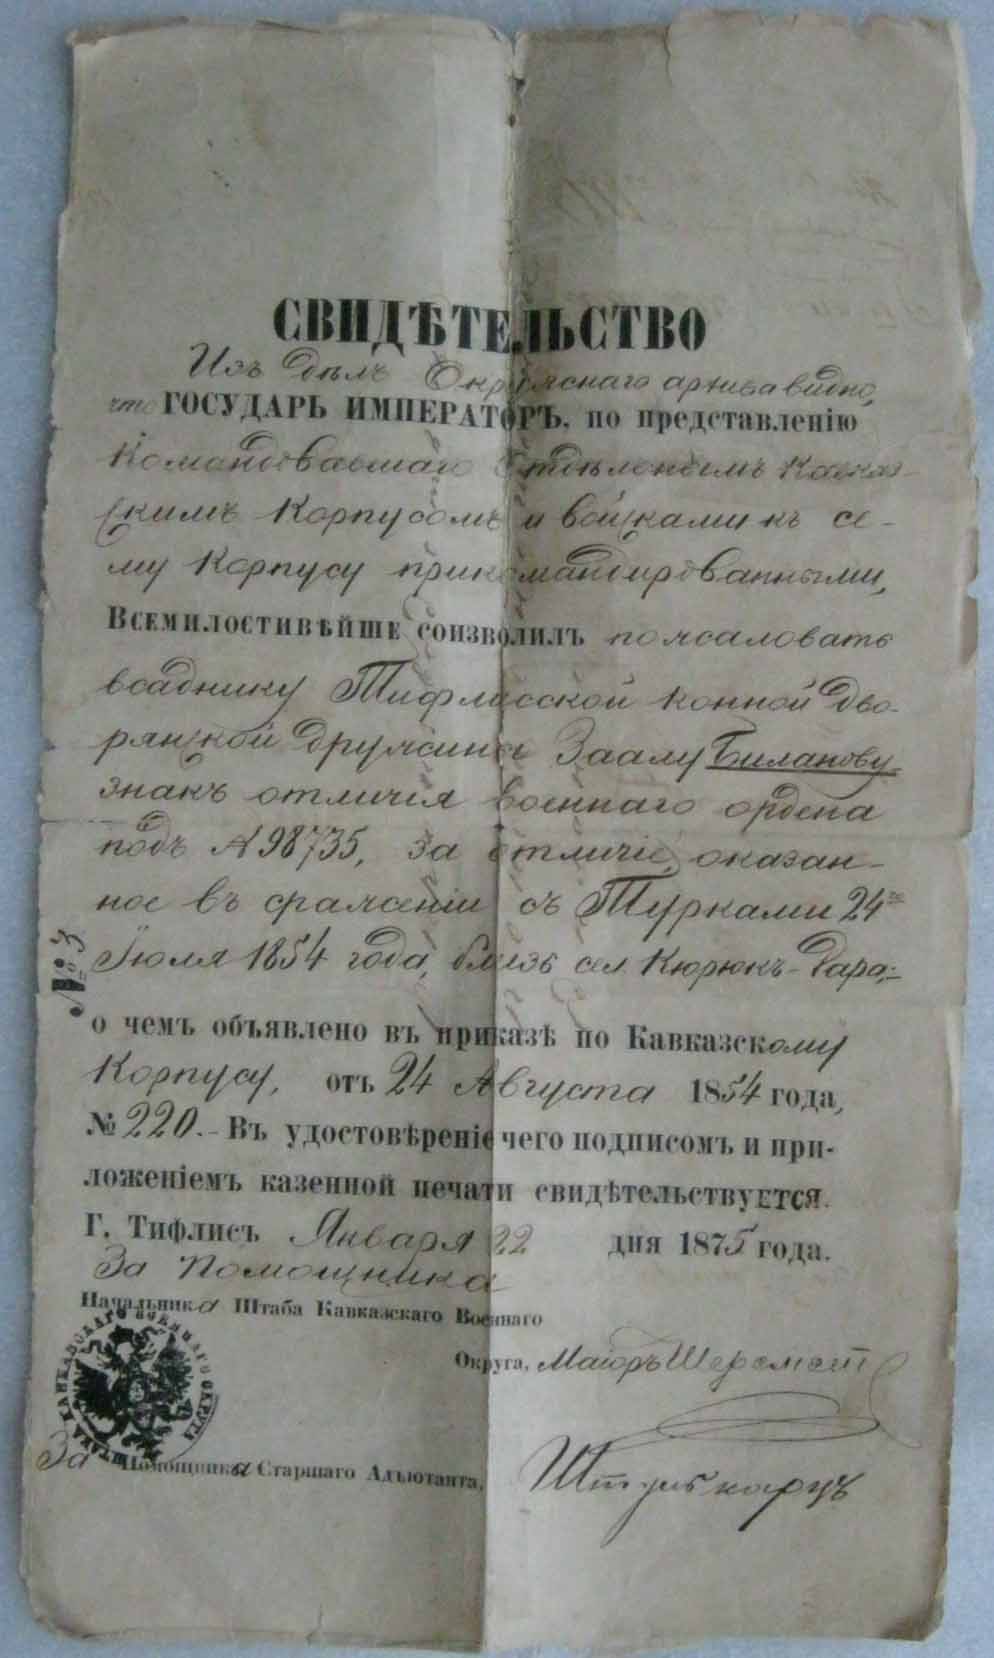 СВИДѢТЕЛЬСТВО
Изъ дѣлъ Окружнаго архива видно,
что ГОСУДАРЬ ИМПЕРАТОРЪ, по представленію
Командовавшаго Отдѣльнымъ Кавказ-
скимъ Корпусомъ и войсками къ се-
му Корпусу прикомандированными,
Всемилостивѣйше соизволилъ пожаловать
всаднику Тифлисской конной дво-
рянской дружины Заалу Биланову
знакъ отличія военнаго ордена
подъ № 98735, за отличіе, оказан-
ное въ сраженіи съ Турками 24го
Іюля 1854 года, близъ сел. Кюрюкъ-Дара;-
№ 3
о чемъ объявлено въ приказѣ по Кавказскому
Корпусу, отъ 24 Августа 1854 года,
№ 220.- Въ удостовѣреніе чего подписомъ и при-
ложеніемъ казенной печати свидѣтельствуется.
Г. Тифлисъ Января 22 дня 1875 года.
За Помощника
Начальника Штаба Кавказскаго Военнаго
Округа, Маіоръ
ШТАБА КАВКАЗСКАГО ВОЕННАГО ОКРУГА
За Помощника Старшаго Адъютанта,